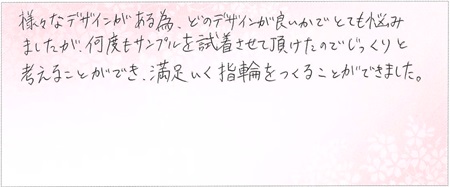 様々なデザインがある為、どのデザインが良いかでとても悩み
ましたが、何度もサンプルを試着させて頂けたのでじっくりと
考えることができ、満足いく指輪をつくることができました。